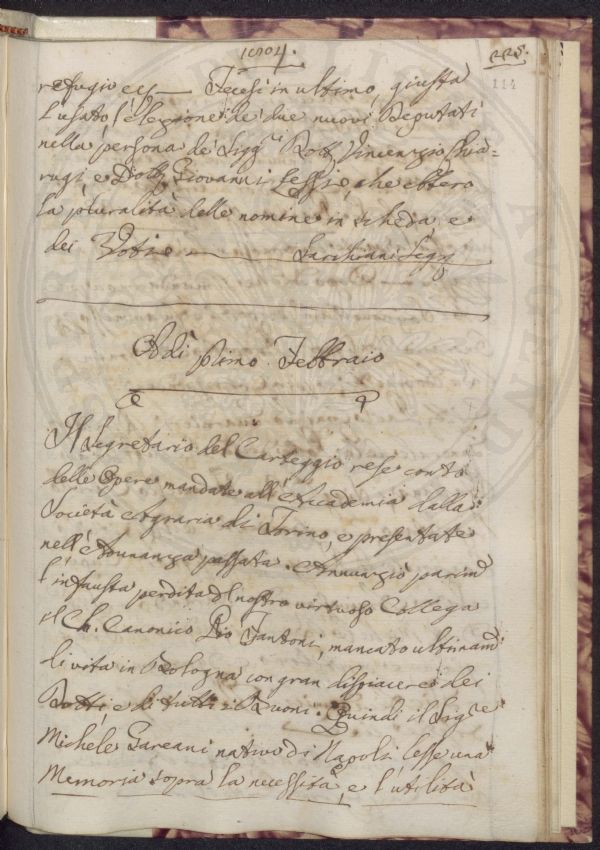 1804.
225.
114
refugio ec — Fecesi in ultimo, giusta
l'usato, l'elezione de' due nuovi Deputati
nella persona de' Sigg.i Dott. Vincenzio Chia=
rugi e Dott. Giovanni Lessi, che ebbero
la pluralità delle nomine in scheda, e
dei Voti —
Adì primo Febbraio
Il Segretario del Carteggio rese conto
delle Opere mandate all'Accademia dalla
Società Agraria di Torino, e presentate
nell'Adunanza passata. Annunziò parim.
l'infausta perdita del nostro virtuoso Collega
il Ch. Canonico Pio Fantoni, mancato ultimam.
di vita in Bologna con gran dispiacere dei
Dotti e di tutti i Buoni. Quindi il Sig.e
Michele Gareani nativo di Napoli lesse una
Memoria sopra la necessità, e l'utilità